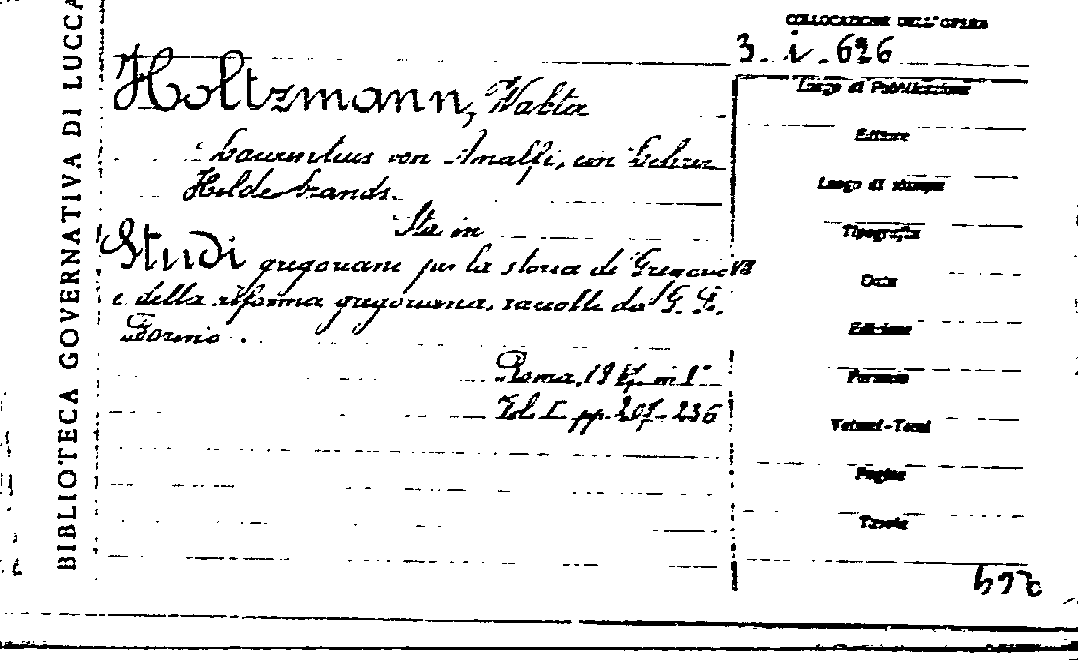 BIBLIOTECA GOVERNATIVA DI LUCCA
COLLOCAZIONE DELL'OPERA
3. i. 626
Holtzmann, Walter
Laurentius von Amalfi, ein Lehrer
Hildebrands.
Sta in
Studi gregoriani per la storia di Gregorio VII
e della riforma gregoriana, raccolti da G. B.
Borino.
Roma, 1947, in 8°
Vol. I pp. 207-236
Luogo di Pubblicazione
Editore
Luogo di stampa
Tipografia
Data
Edizione
Formato
Volumi-Tomi
Pagine
Tavole